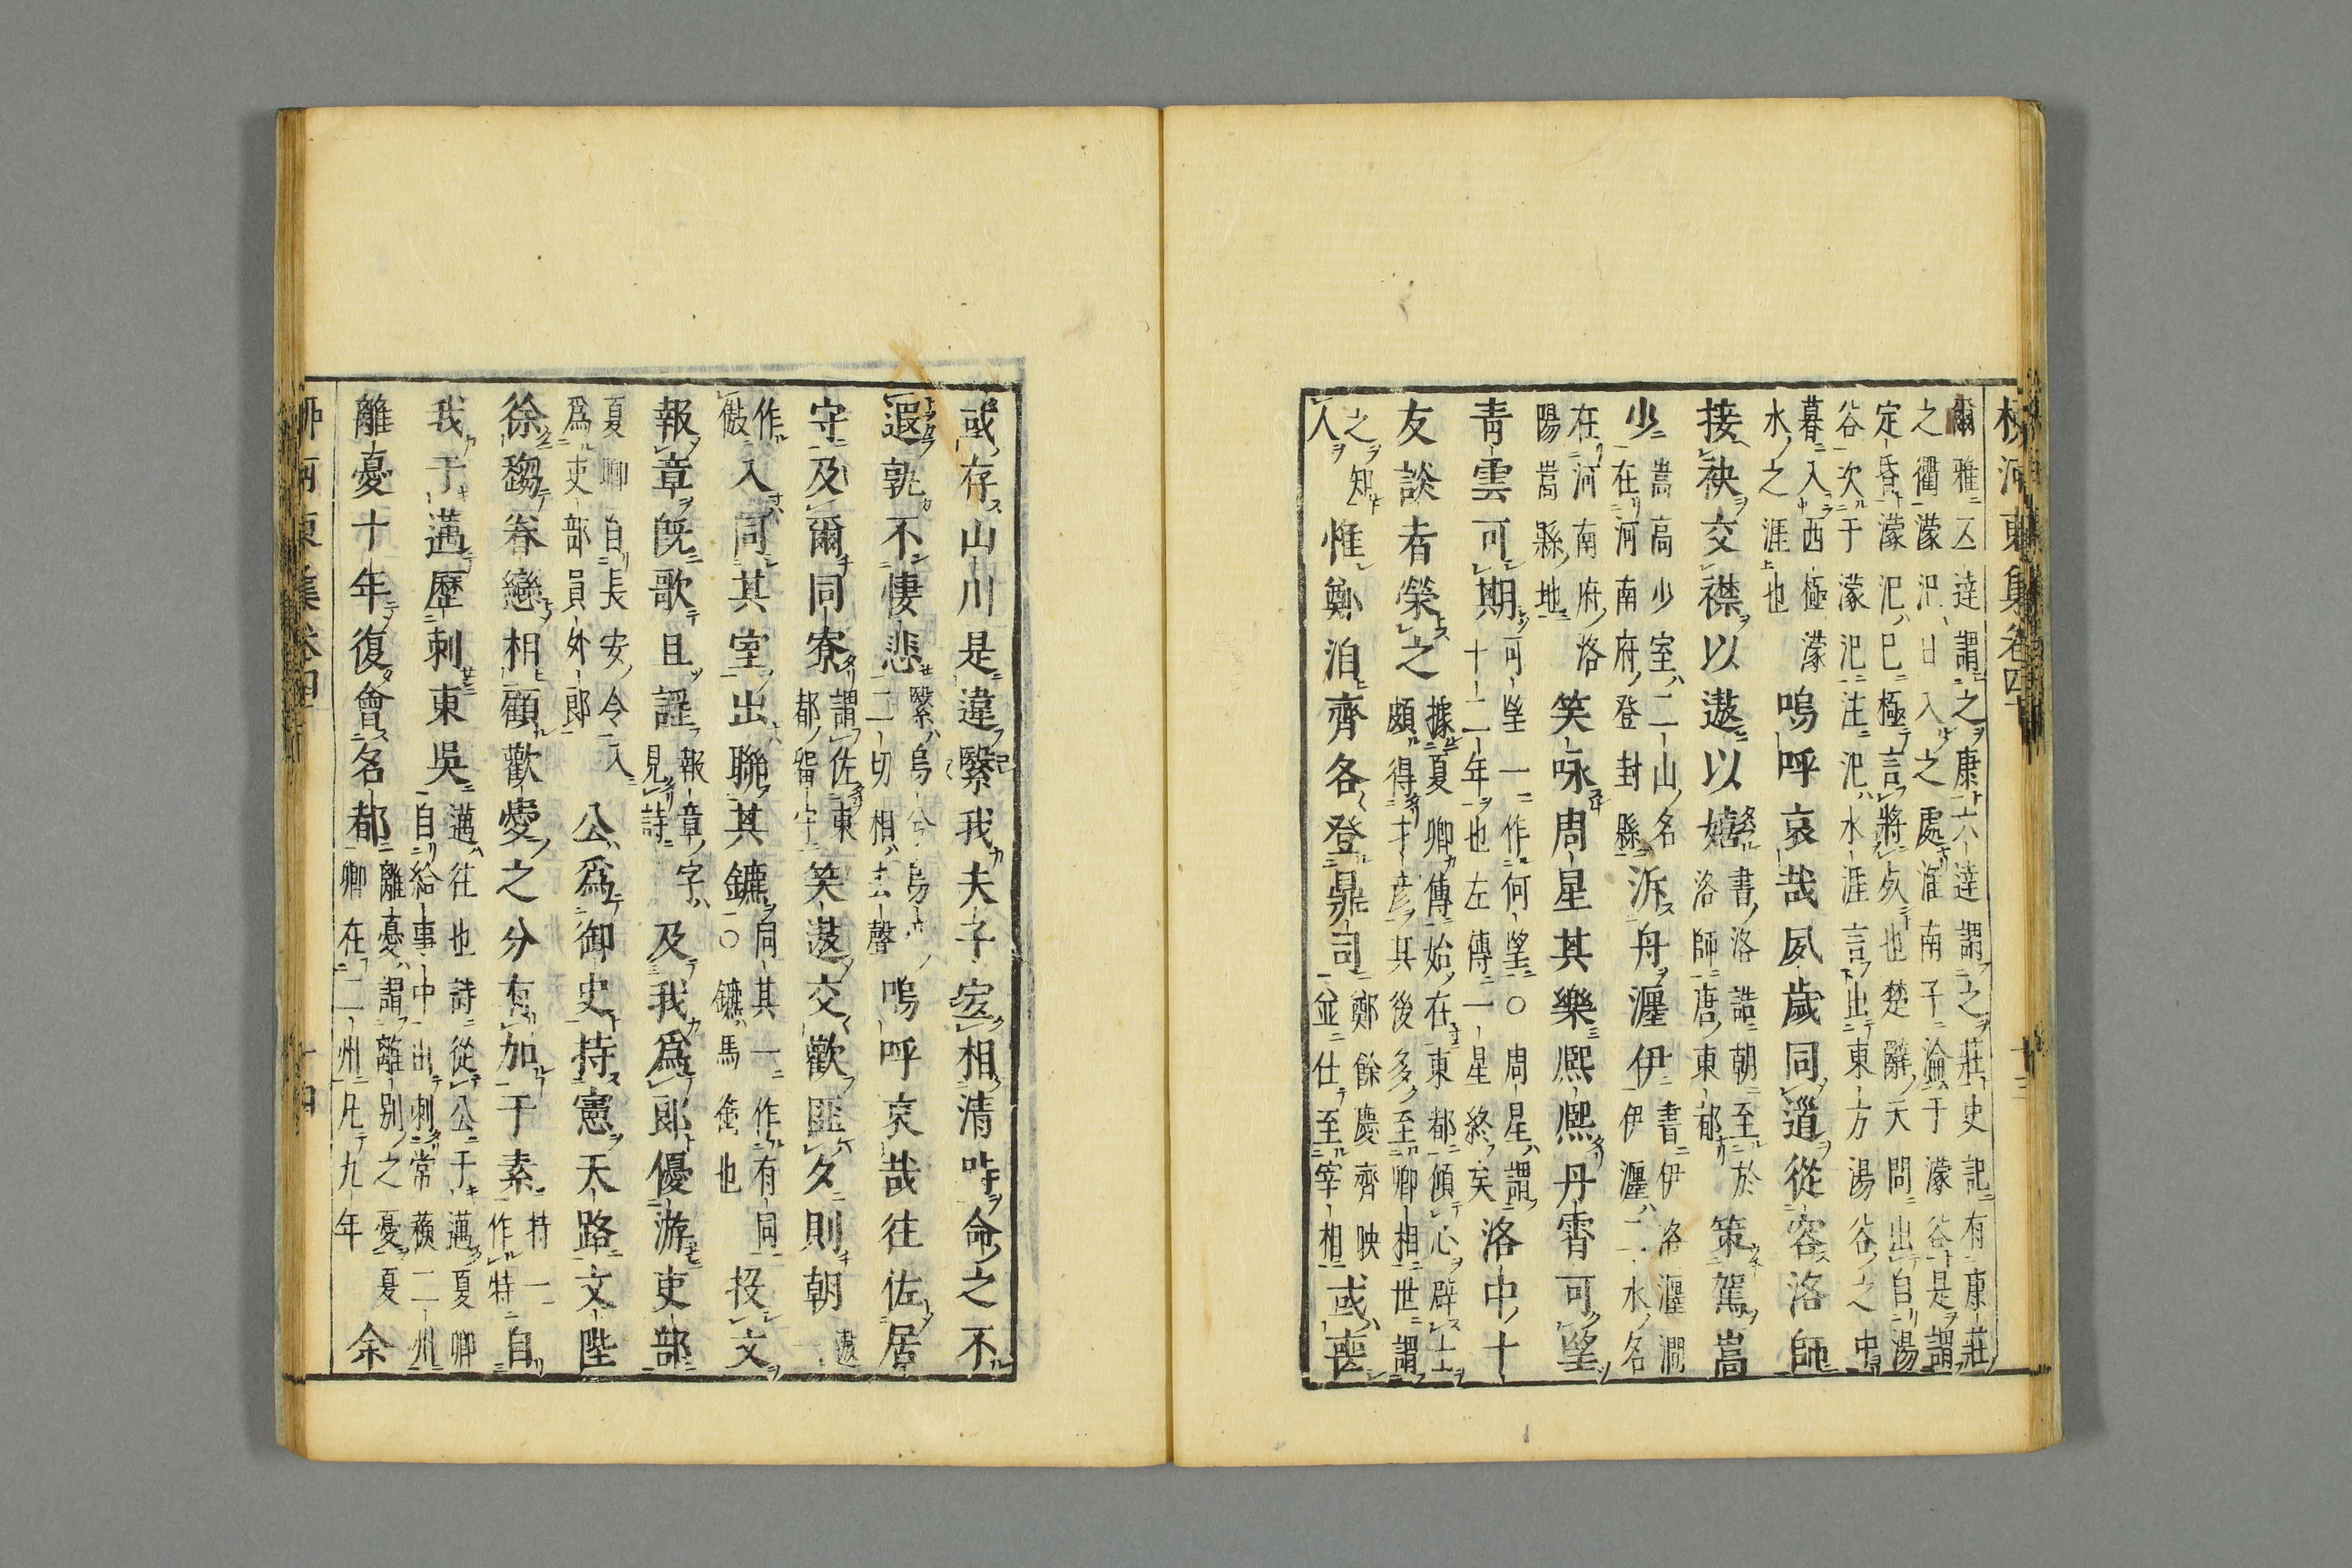 柳河東集卷四 十三
爾雅五達謂之康六達謂之莊史記有康莊
之衢濛汜日入之處淮南子淪于濛谷是謂
定昏濛汜已極言將夜也楚辭天問出自湯
谷次于濛汜注汜水涯言出東方湯谷之中
暮入西極濛
水之涯也
嗚呼哀哉夙歲同道從容洛師
接袂交襟以遨以嬉
書洛誥朝至於
洛師唐東都
策駕嵩
少
嵩高少室二山名
在河南府登封縣
泝舟瀍伊
書伊洛瀍澗
伊瀍二水名
在河南府洛
陽嵩縣地
笑咏周星其樂熙熙丹霄可望
青雲可期
可望一作何望○周星謂
十二年也左傳一星終矣
洛中十
友談者榮之
據夏卿傳始在東都傾心辟士
頗得才彦其後多至卿相世謂
之知
人
惟鄭洎齊各登鼎司
鄭餘慶齊映
並仕至宰相
或喪
或存山川是違繄我夫子宻相清時命之不
遐孰不悽悲
繄烏兮烏
二切相去聲
嗚呼哀哉往佐居
守及爾同寮
謂佐東
都留守
笑遨交歡匪久則朝
遨一
作
傲
入同其室出聯其鑣
同其一作有同
○鑣馬銜也
投文
報章旣歌且謡
報章字
見詩
及我爲郎優游吏部
夏卿自長安令入
爲吏部員外郎
公爲御史持憲天路文陛
徐趨眷戀相顧歡愛之分有加于素
持一
作特
自
我于邁歷刺東吳
邁往也詩從公于邁夏卿
自給事中出刺常蘇二州
離憂十年復會名都
離憂謂離别之憂夏
卿在二州凡九年
余
柳河東集卷四 十四